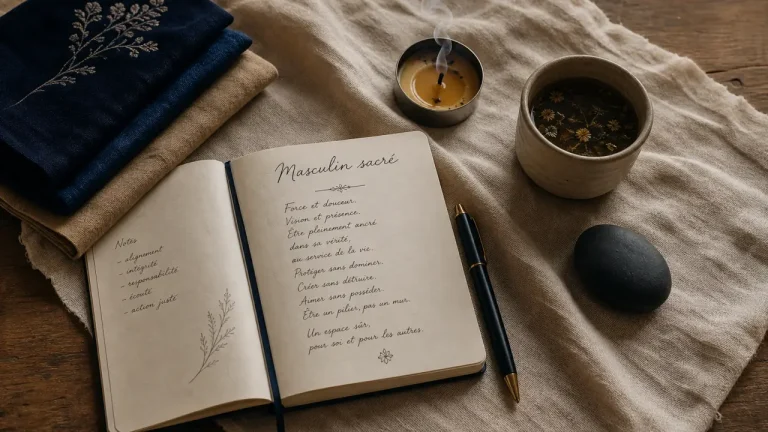 Notes
- alignement
- intégrité
- responsabilité
- écoute
- action juste
Masculin sacré
Force et douceur.
Vision et présence.
Être pleinement ancré
dans sa vérité,
au service de la vie.
Protéger sans dominer.
Créer sans détruire.
Aimer sans posséder.
Être un pilier, pas un mur.
Un espace sûr,
pour soi et pour les autres.